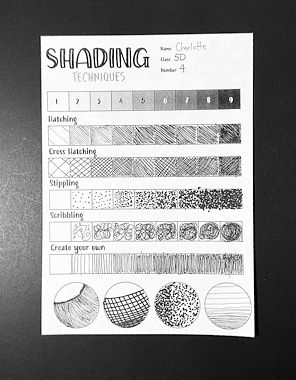 SHADING
TECHNIQUES
Name Charlotte
Class 5D
Number 4
1 2 3 4 5 6 7 8 9
Hatching
Cross Hatching
Stippling
Scribbling
Create your own